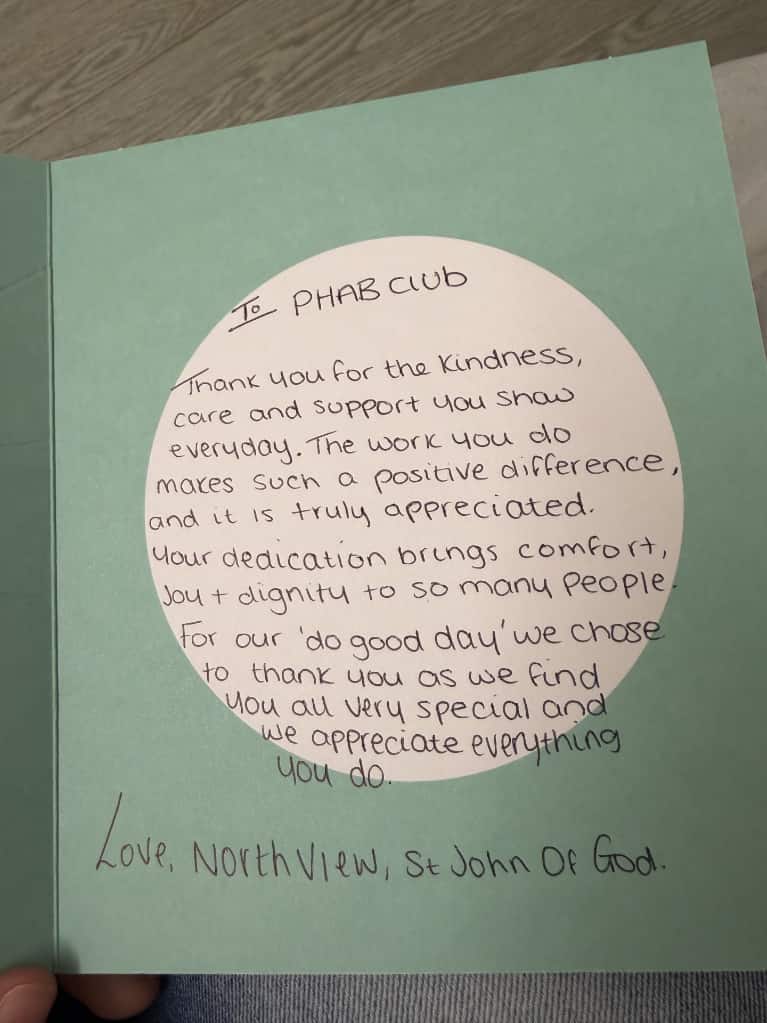 To PHAB Club
Thank you for the kindness,
care and support you show
everyday. The work you do
makes such a positive difference,
and it is truly appreciated.
Your dedication brings comfort,
Joy + dignity to so many people.
For our 'do good day' we chose
to thank you as we find
you all very special and
we appreciate everything
you do.
Love, North View, St John Of God.